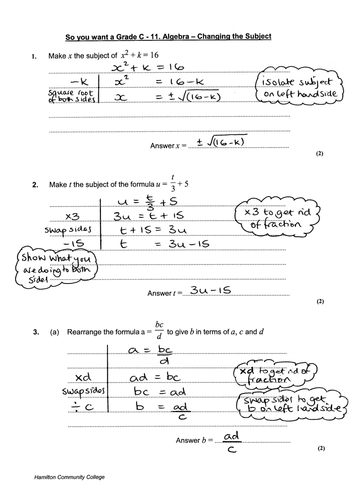 So you want a Grade C - 11. Algebra – Changing the Subject
1. Make x the subject of x² + k = 16
x² + k = 16
-k x² = 16 - k
square root of both sides x = ± √(16-k)
isolate subject on left handside
Answer x = ± √(16-k)
(2)
2. Make t the subject of the formula u = t/3 + 5
u = t/3 + 5
x3 3u = t + 15
swap sides t + 15 = 3u
-15 t = 3u - 15
x3 to get rid of fraction
Show what you are doing to both sides
Answer t = 3u - 15
(2)
3. (a) Rearrange the formula a = bc/d to give b in terms of a, c and d
a = bc/d
xd ad = bc
swap sides bc = ad
÷ c b = ad/c
xd to get rid of fraction
swap sides to get b on left handside
Answer b = ad/c
(2)
Hamilton Community College